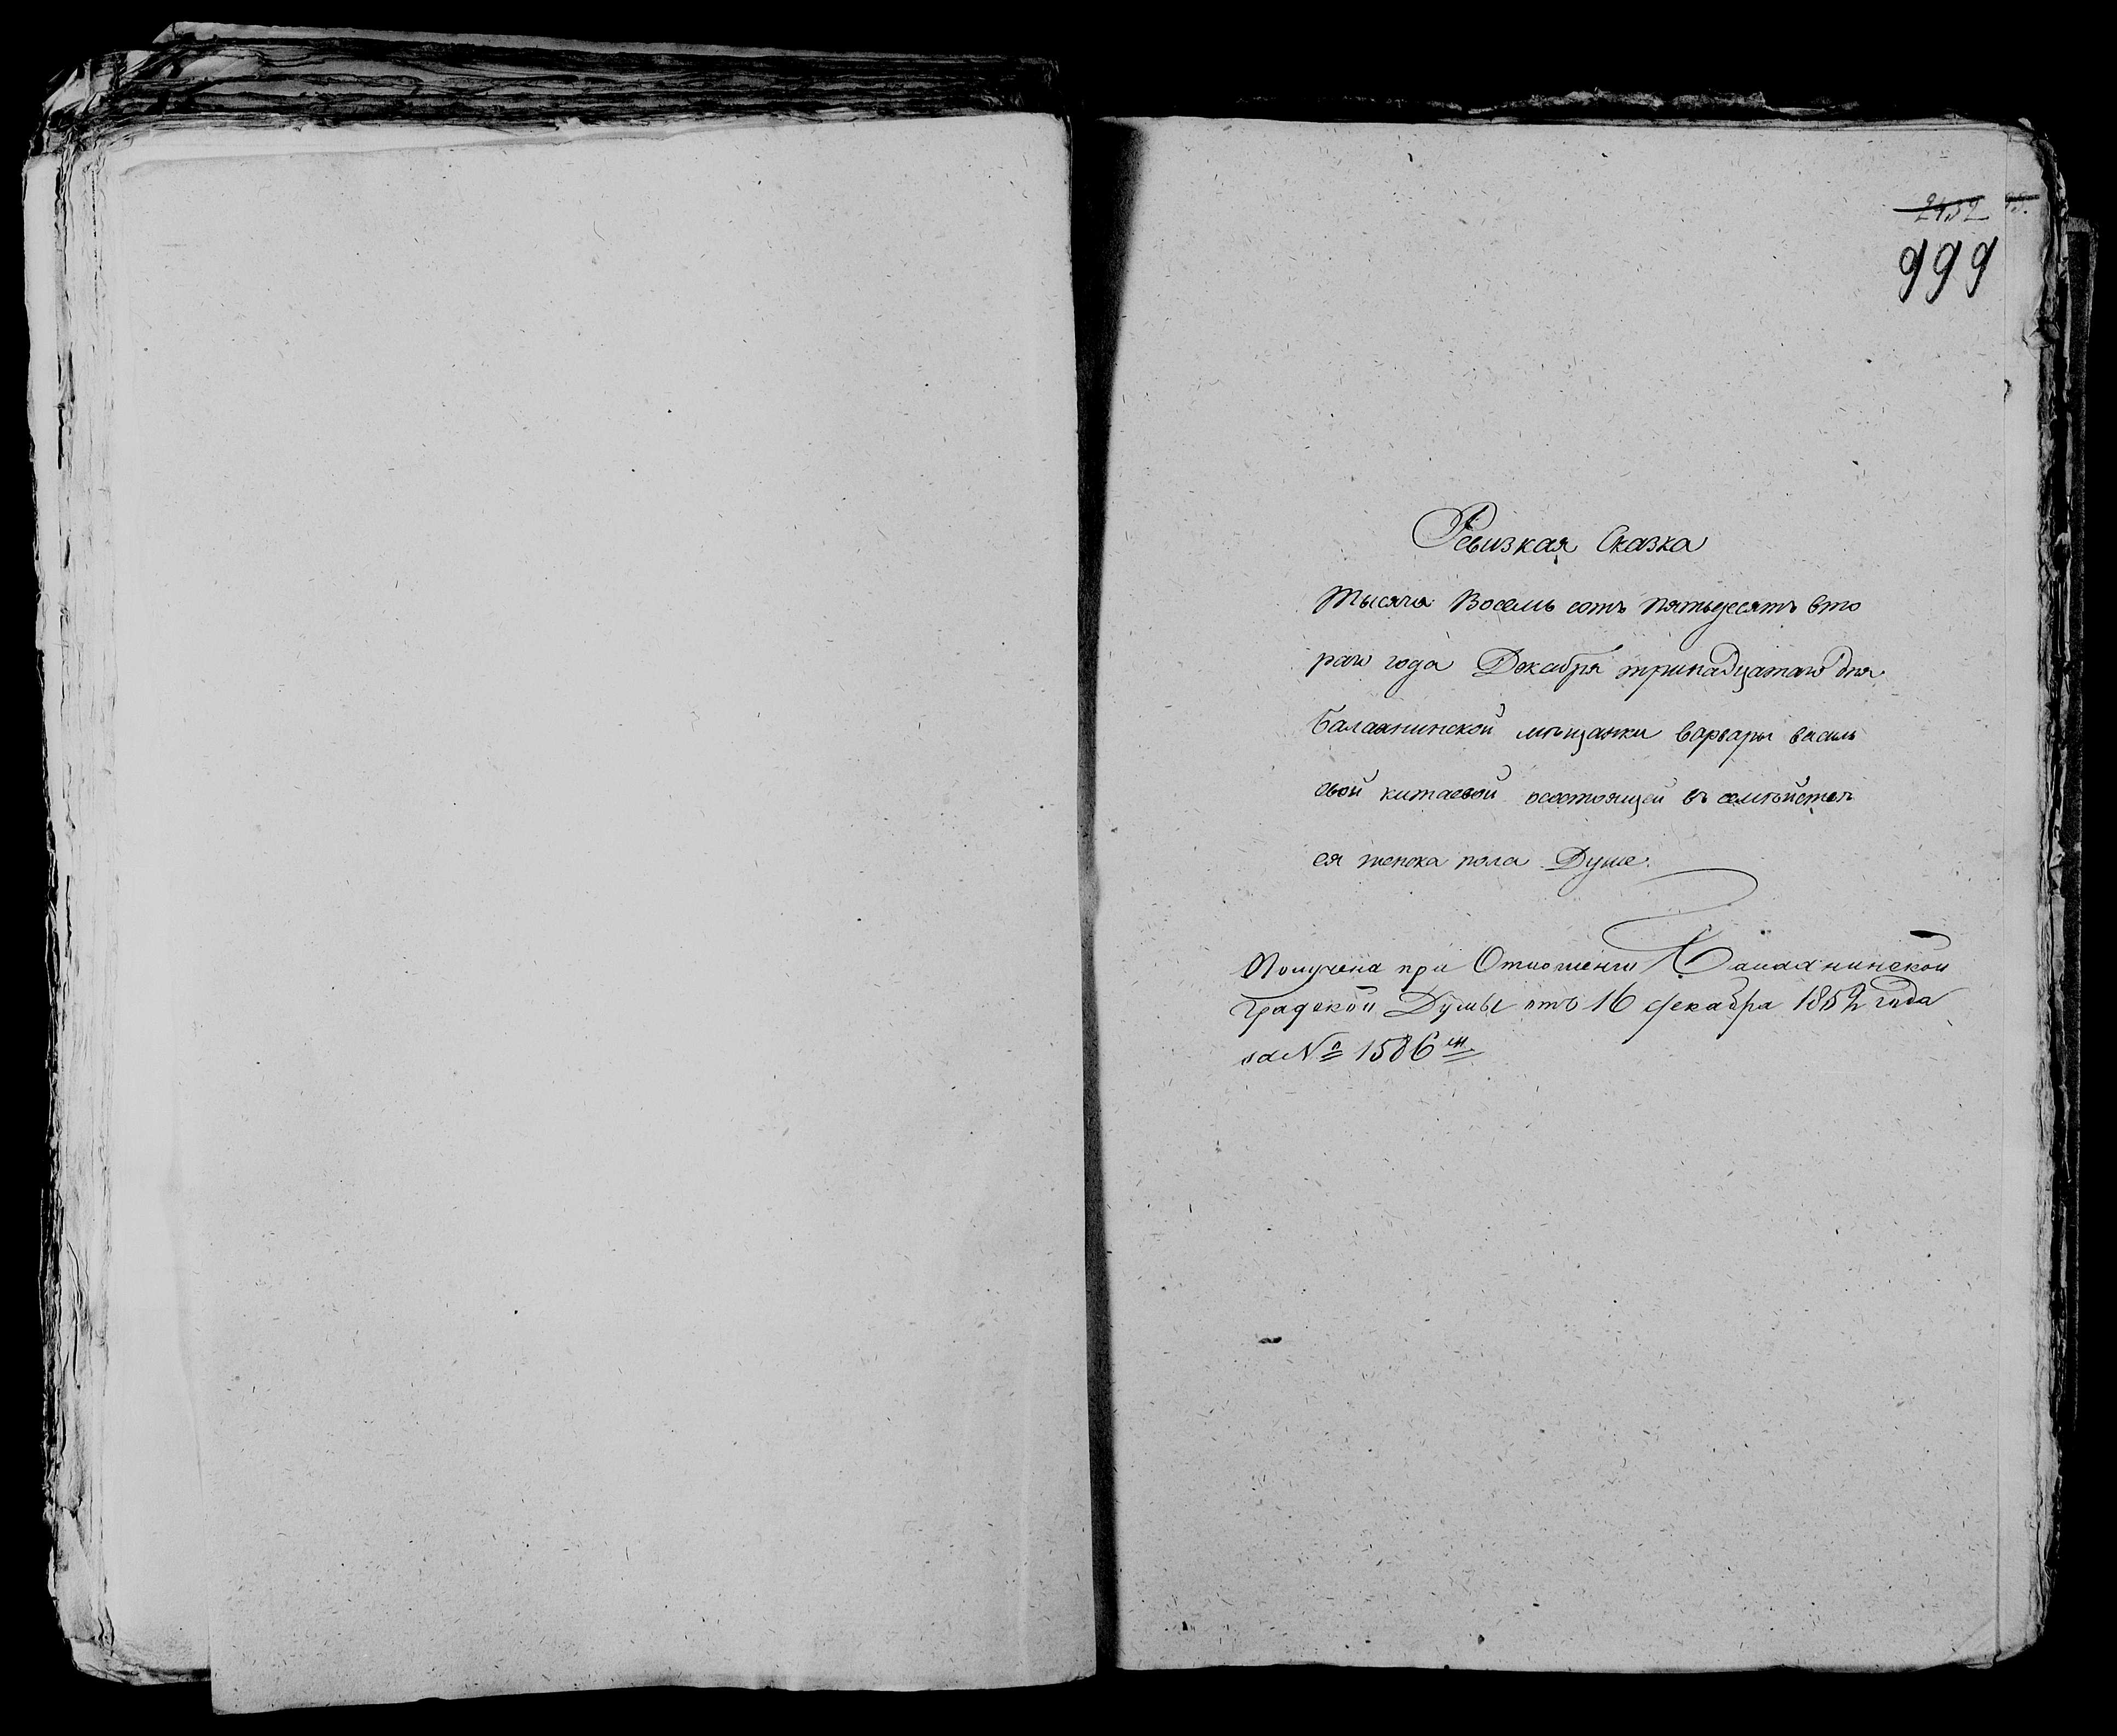 2432
999
Ревизкая Сказка
Тысяча Восемь сотъ пятьдесятъ вто
раго года Декабря тринадцатаго дня
Балахнинской мѣщанки варвары василь
евой китаевой о состоящей въ семѣйстве
ея женска пола Душе.
Получена при Отношении Балахнинской
Градской Думы отъ 16 декабра 1852 года
за № 1586 м.